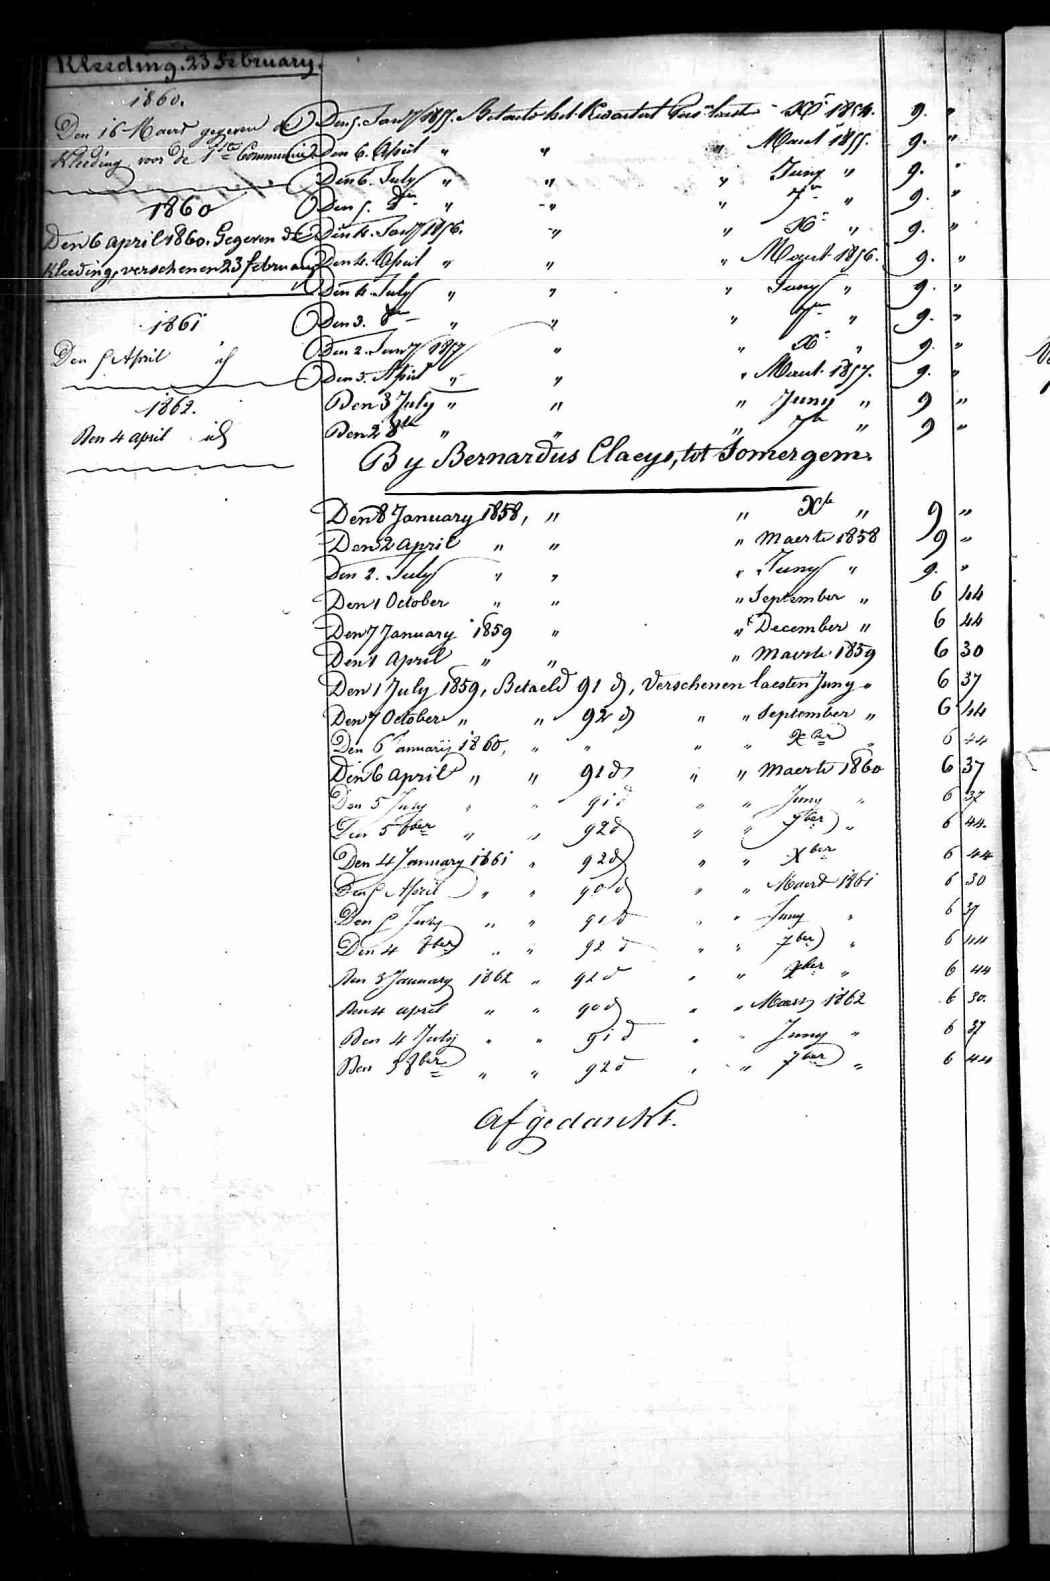 Kleeding. 23 February.
1860.
Den 16 Maert gegeven de
Kleeding voor de 1ste Communie
1860
Den 6 april 1860. Gegeven de
Kleeding, verschenen 23 february
1861
Den 5 April id
1862.
Den 4 april id
Den 5. Jany 1855. Betaelt het Kwartaet laest Xr 1854. 9. "
Den 6. April " " " Maert 1855. 9. "
Den 6. July " " " Juny " 9. "
Den 5. 8br " " " 7r " 9. "
Den 4. Jany 1856. " " Xr " 9. "
Den 4. April " " " Maert 1856. 9. "
Den 4. July " " " Juny " 9. "
Den 3. 8br " " " 7r " 9. "
Den 2. Jany 1857 " " Xr " 9. "
Den 3. April " " " Maert 1857. 9. "
Den 3 July " " " Juny " 9 "
Den 2 8br " " " 7br " 9 "
By Bernardus Claeys, tot Somergem.
Den 8 January 1858, " " Xbr " 9 "
Den 2 april " " " Maerte 1858 9 "
Den 2. July " " " Juny " 9. "
Den 1 October " " " September " 6 44
Den 7 January 1859 " " December " 6 44
Den 1 April " " " Maerte 1859 6 30
Den 1 July 1859, Betaeld 91 d, Verschenen laesten Juny " 6 37
Den 7 October " " 92 d " " September " 6 44
Den 6 Januarij 1860, " " " " Xber " 6 44
Den 6 april " " 91 d " " Maerte 1860 6 37
Den 5 July " " 91 d " " Juny " 6 37
Den 5 8ber " " 92 d " " 7ber " 6 44.
Den 4 January 1861 " 92 d " " Xber 6 44
Den 5 April " " 90 d " " Maert 1861 6 30
Den 5 July " " 91 d " " Juny " 6 37
Den 4 8ber " " 92 d " " 7ber " 6 44
Den 3 January 1862 " 92 d " " Xber " 6 44
Den 4 april " " 90 d " " Maert 1862 6 30.
Den 4 July " " 91 d " " Juny " 6 37
Den 3 8ber " " 92 d " " 7ber " 6 44
Afgedankt.